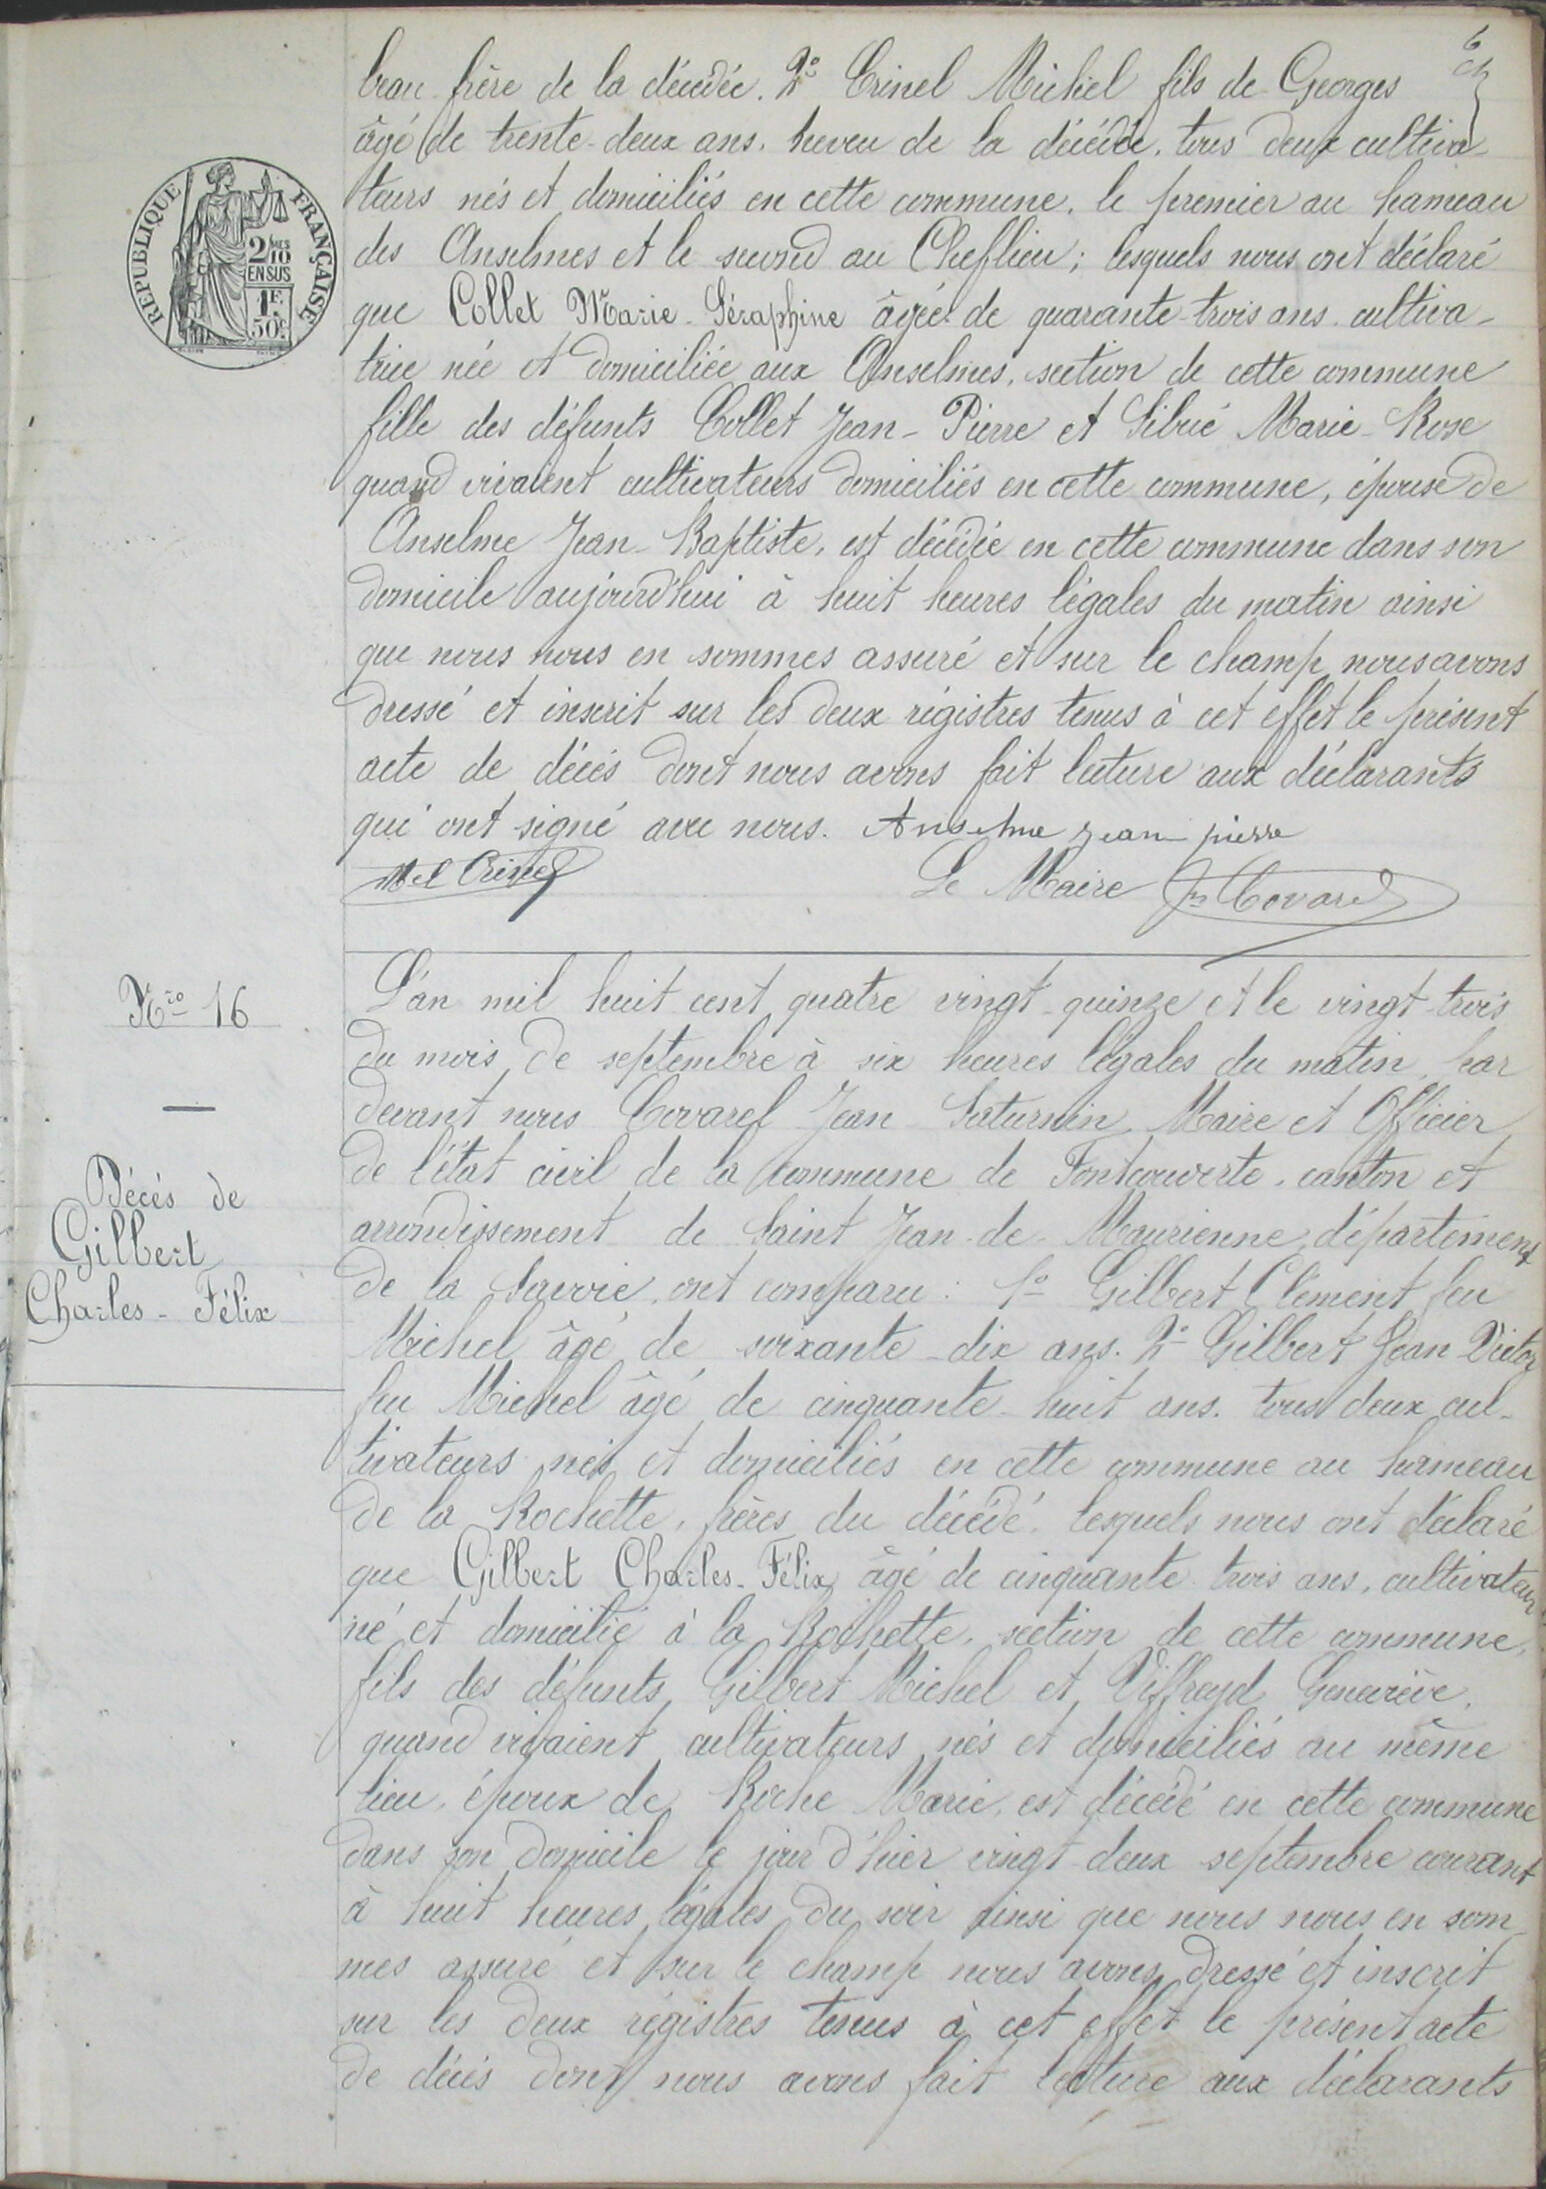 6
beau-frère de la décédée. 2° Crinel Michel fils de Georges
âgé de trente-deux ans, neveu de la décédée, tous deux cultiva-
teurs nés et domiciliés en cette commune, le premier au hameau
des Anselmes et le second au Cheflieu; lesquels nous ont déclaré
que Collet Marie-Séraphine âgée de quarante-trois ans, cultiva-
trice née et domiciliée aux Anselmes, section de cette commune
fille des défunts Collet Jean-Pierre et Sibué Marie-Rose
quand vivaient cultivateurs domiciliés en cette commune, épouse de
Anselme Jean-Baptiste, est décédée en cette commune dans son
domicile aujourd'hui à huit heures légales du matin ainsi
que nous nous en sommes assuré et sur le champ nous avons
dressé et inscrit sur les deux régistres tenus à cet effet le présent
acte de décès dont nous avons fait lecture aux déclarants
qui ont signé avec nous. Anselme jean pierre
Mel Crinel Le Maire Jn Covarel
REPUBLIQUE FRANÇAISE
2/10 EN SUS
1F. 50c.
N° 16
Décès de
Gilbert
Charles-Félix
L'an mil huit cent quatre vingt-quinze et le vingt-trois
du mois de septembre à six heures légales du matin, par
devant nous Covarel Jean Saturnin Maire et Officier
de l'état civil de la commune de Fontcouverte, canton et
arrondissement de Saint Jean-de-Maurienne, département
de la Savoie, ont comparu: 1° Gilbert Clément feu
Michel âgé de soixante-dix ans. 2° Gilbert Jean Victor
feu Michel âgé de cinquante-huit ans. tous deux cul-
tivateurs nés et domiciliés en cette commune au hameau
de la Rochette, frères du décédé. lesquels nous ont déclaré
que Gilbert Charles-Félix âgé de cinquante trois ans, cultivateur
né et domicilié à la Rochette, section de cette commune,
fils des défunts Gilbert Michel et Viffreyd Geneviève,
quand vivaient cultivateurs nés et domiciliés au même
lieu, époux de Roche Marie, est décédé en cette commune
dans son domicile le jour d'hier vingt-deux septembre courant
à huit heures légales du soir ainsi que nous nous en som-
mes assuré et sur le champ nous avons dressé et inscrit
sur les deux régistres tenus à cet effet le présent acte
de décès dont nous avons fait lecture aux déclarants